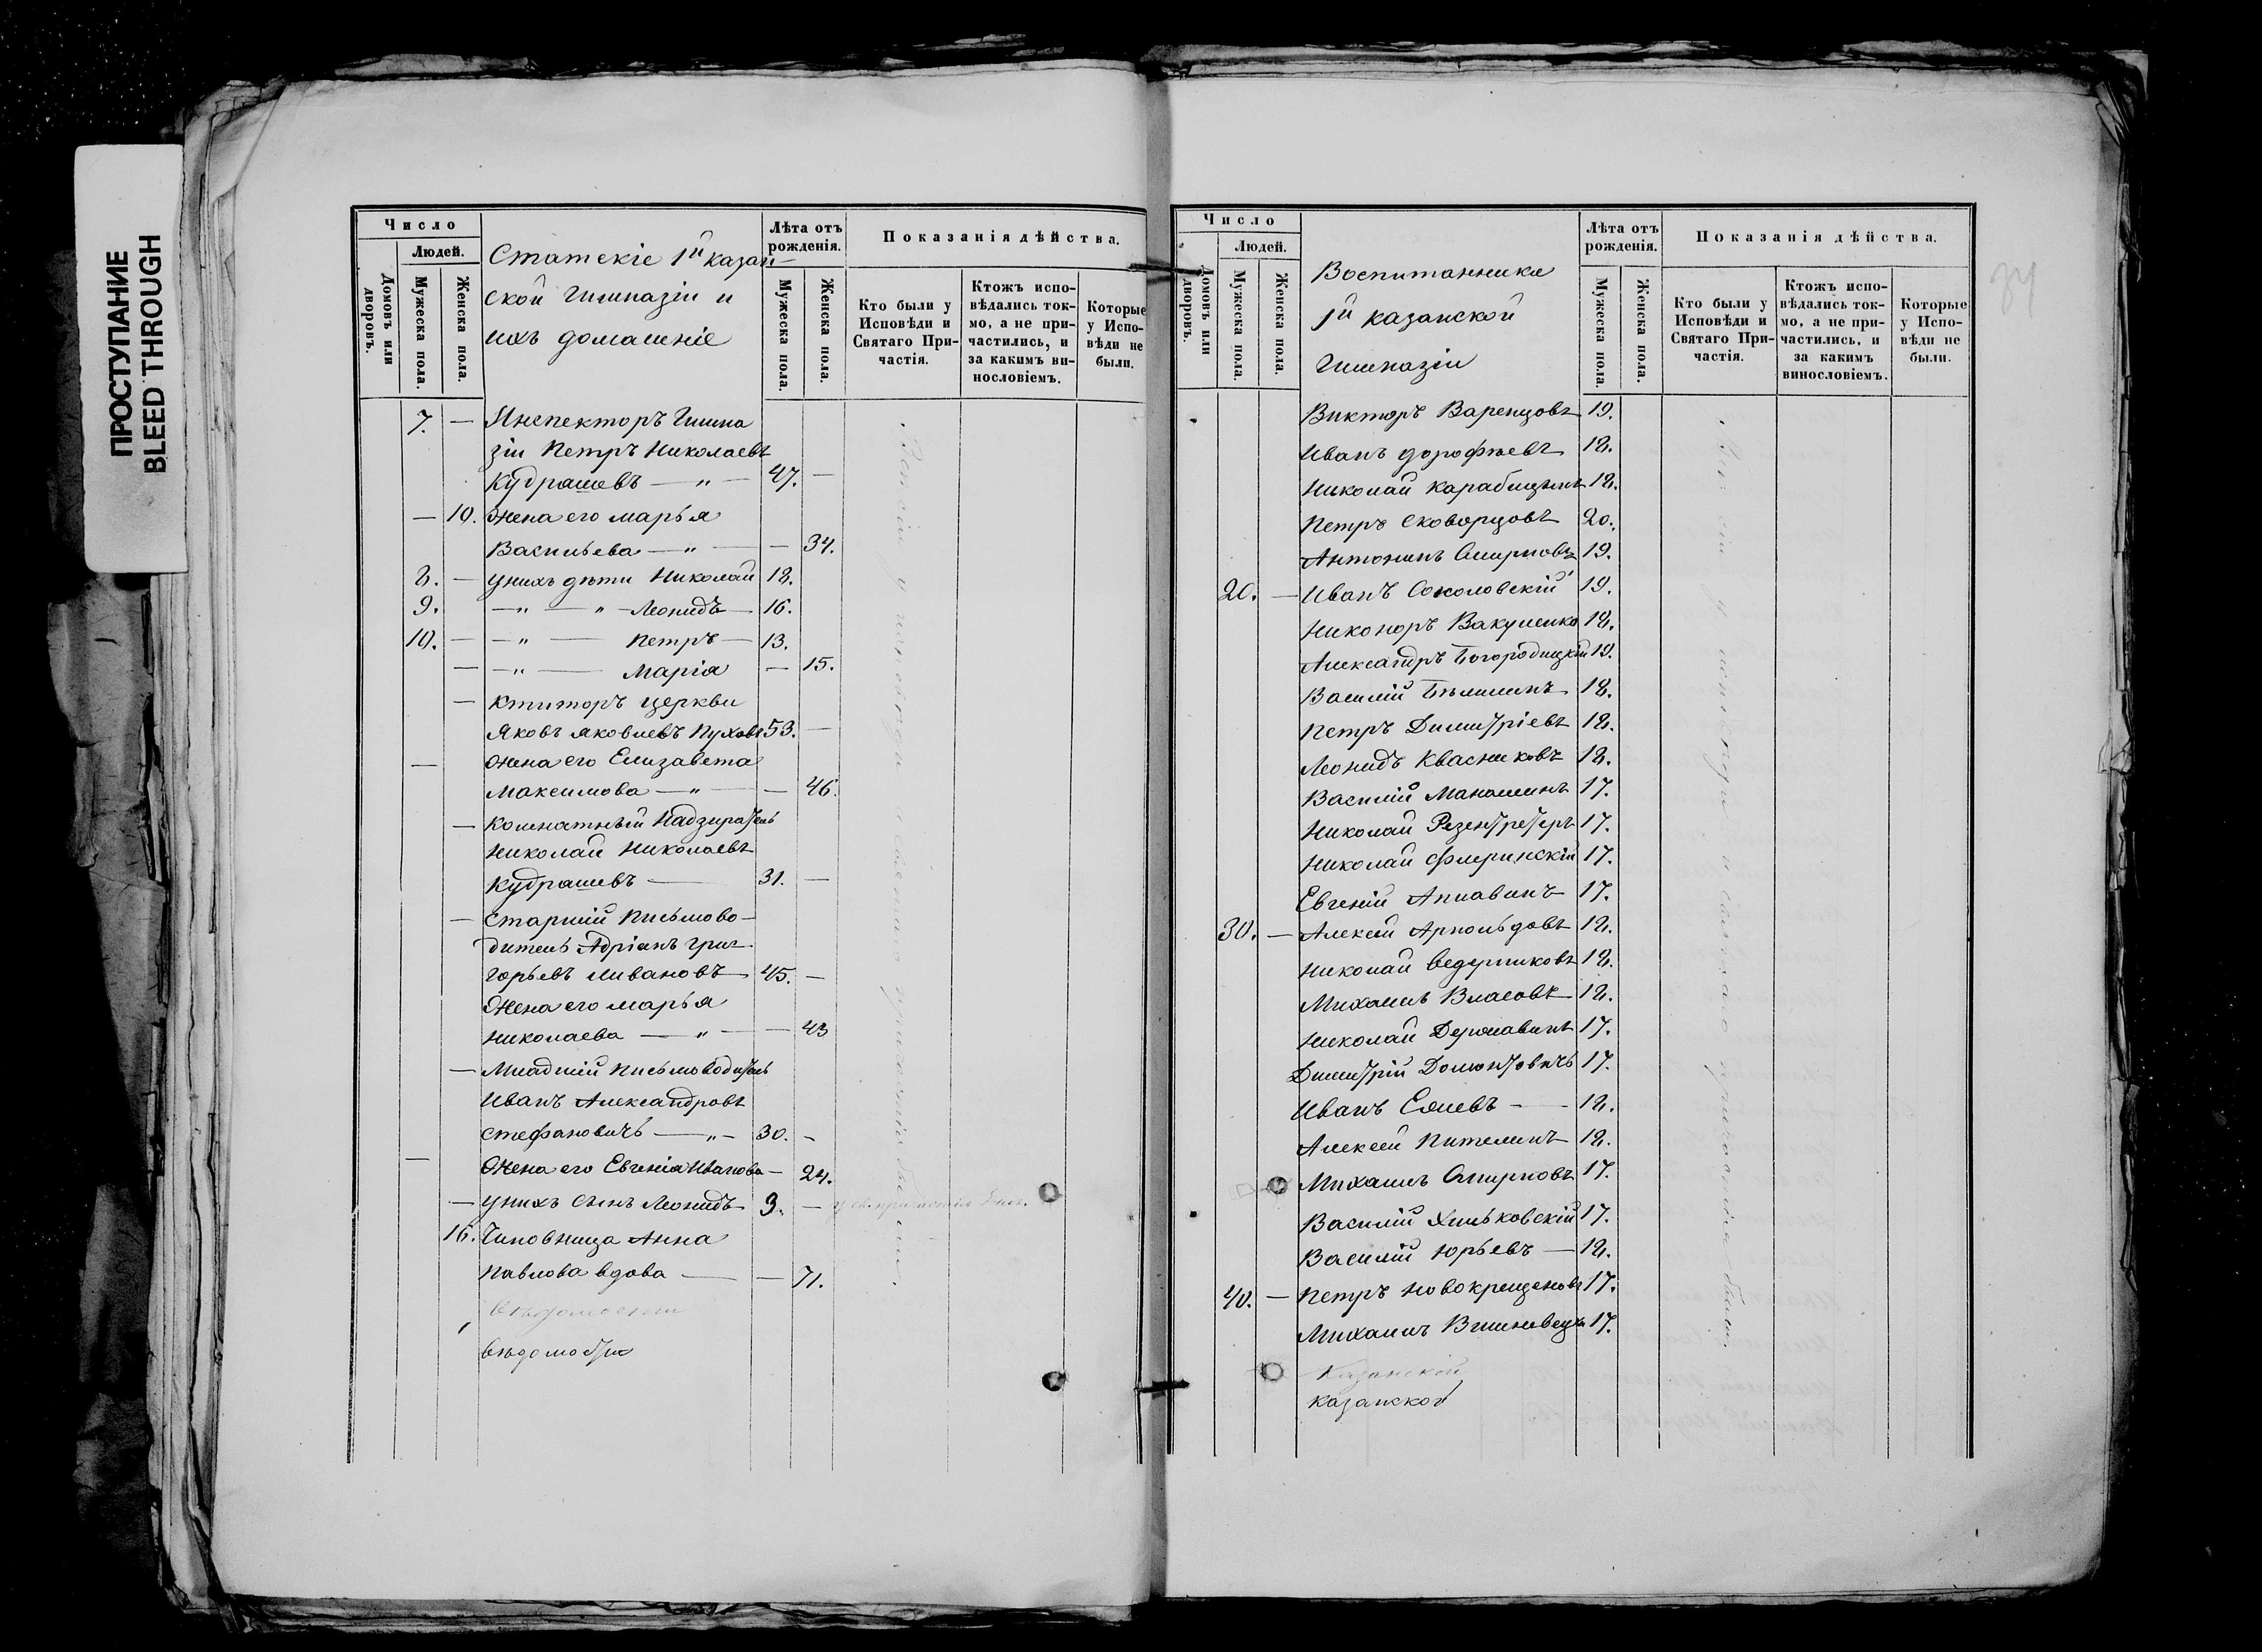 ПРОСТУПАНИЕ
BLEED THROUGH
Число
Людей.
Домовъ или дворовъ.
Мужеска пола.
Женска пола.
Статскіе 1й казан-
ской Гимназіи и
ихъ домашніе
Лѣта отъ рожденія.
Мужеска пола.
Женска пола.
Показанія дѣйства.
Кто были у Исповѣди и Святаго Причастія.
Ктожъ исповѣдались токмо, а не причастились, и за какимъ винословіемъ.
Которые у Исповѣди не были.
7. — Инспекторъ Гимна
зіи Петръ Николаевъ
Кудряшевъ — " — 47. —
— 10. Жена его Марья
Васильева — " — — 34.
8. — у нихъ дѣти Николай 18.
9. — " — " — Леонидъ — 16.
10. — — " — Петръ — 13.
— — " — Марія — 15.
— Ктиторъ церкви
Яковъ Яковлевъ Пуховъ 53. —
— Жена его Елизавета
Максимова — " — — 46.
— Комнатный Надзиратель
Николай Николаевъ
Кудряшевъ — 31. —
— Старшій Письмово-
дитель Адріанъ Гри-
горьевъ Ливановъ — 45. —
Жена его Марья
Николаева — " — — 43
— Младшій Письмоводитель
Иванъ Александровъ
Стефановичъ — " — 30. —
— Жена его Евгенія Иванова — 24.
— У нихъ сынъ Леонидъ 3. — у св. причастія былъ.
16. Чиновница Анна
Павлова вдова — — 71.
вѣдомости
вѣдомости
Число
Людей.
Домовъ или дворовъ.
Мужеска пола.
Женска пола.
Воспитанники
1й казанской
Гимназіи
Лѣта отъ рожденія.
Мужеска пола.
Женска пола.
Показанія дѣйства.
Кто были у Исповѣди и Святаго Причастія.
Ктожъ исповѣдались токмо, а не причастились, и за какимъ винословіемъ.
Которые у Исповѣди не были.
Викторъ Варенцовъ 19.
Иванъ Дорофѣевъ 18.
Николай 18.
Петръ Скворцовъ 20.
Антонинъ Смирновъ 19.
20. — Иванъ Соколовскій 19.
Никоноръ Вакуленко 18.
Александръ Богородицкій 19.
Василій 18.
Петръ Димитріевъ 18.
Леонидъ Квасниковъ 18.
Василій 17.
Николай 17.
Николай Флеринскій 17.
Евгеній 17.
30. — Алексѣй Арнольдовъ 18.
Николай Ведерниковъ 18.
Михаилъ Власовъ — 18.
Николай Державинъ 17.
Димитрій Домонтовичъ 17.
Иванъ — 18.
Алексѣй 18.
Михаилъ Смирновъ 17.
Василій Хмѣльковскій 17.
Василій Юрьевъ — 18.
40. — Петръ Новокрещеновъ 17.
Михаилъ 17.
Казанской
казанской